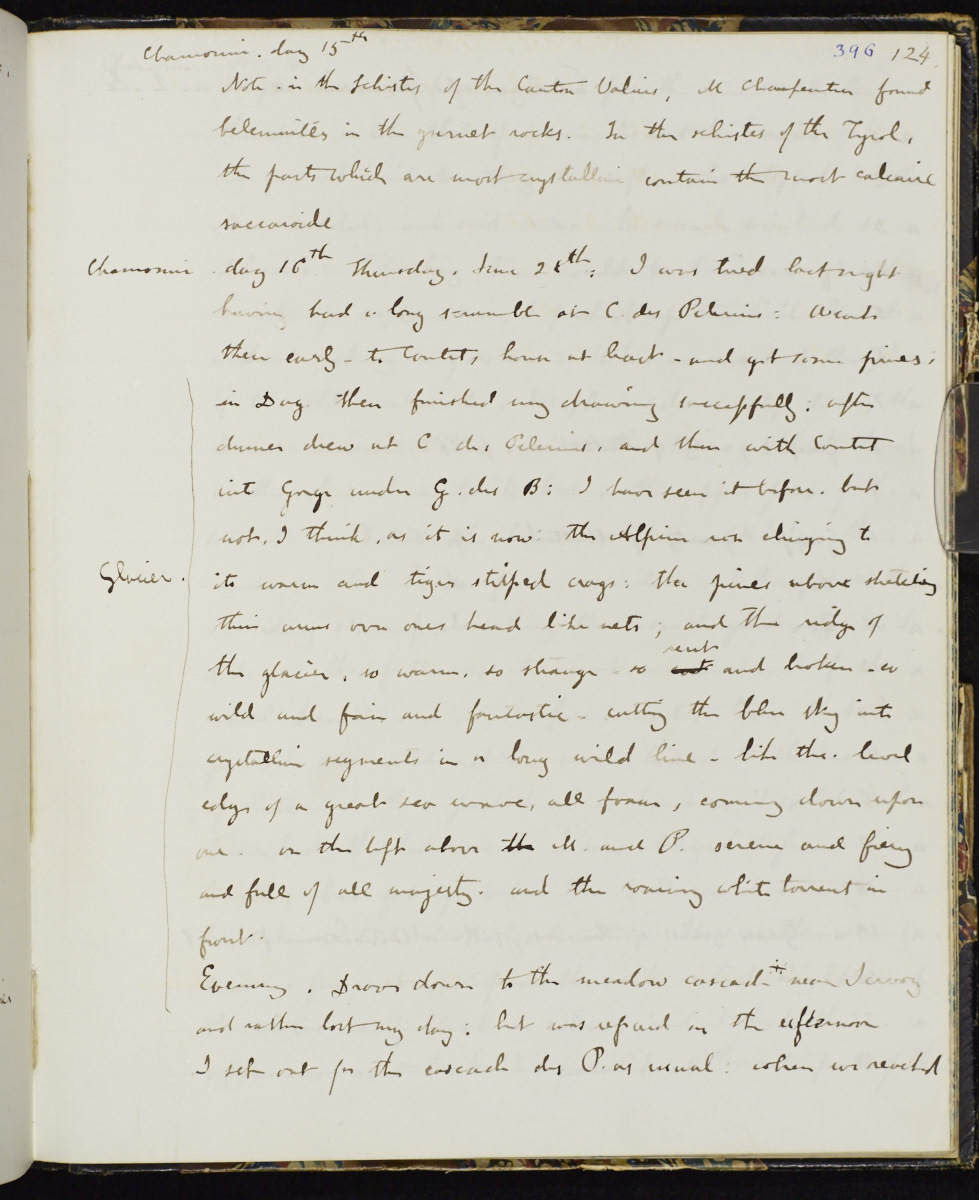 Chamouni. day 15th
396 124.
Note. in the Schistes of the Canton Valais, M Charpentier found
belemnites in the garnet rocks. In the schistes of the Tyrol,
the parts which are most crystalline contain the most calcaire
saccaroide
Chamouni. day 16th Thursday. June 28th: I was tired last night
having had a long scramble at C. des Pelerins: Went
then early - to Contet's house at back - and got some pines.
in Dag. then finished my drawing successfully: after
dinner drew at C. des Pelerins. and then with Contet
into Gorge under G. des B: I have seen it before. but
not, I think, as it is now: the Alpine rose clinging to
Glacier.
its warm and tiger striped crags: the pines above stretching
their arms over ones head like nets; and the ridge of
the glacier, so warm, so strange - so rent and broken - so
wild and fair and fantastic - cutting the blue sky into
crystalline segments in a long wild line - like the level
edge of a great sea wave, all foam, coming down upon
one. on the left above the M. and P. serene and fiery
and full of all majesty. and the roaring white torrent in
front.
Evening. Drove down to the meadow cascade near
and rather lost my day: but was repaid in the afternoon
I set out for the cascade des P. as usual: when we reached